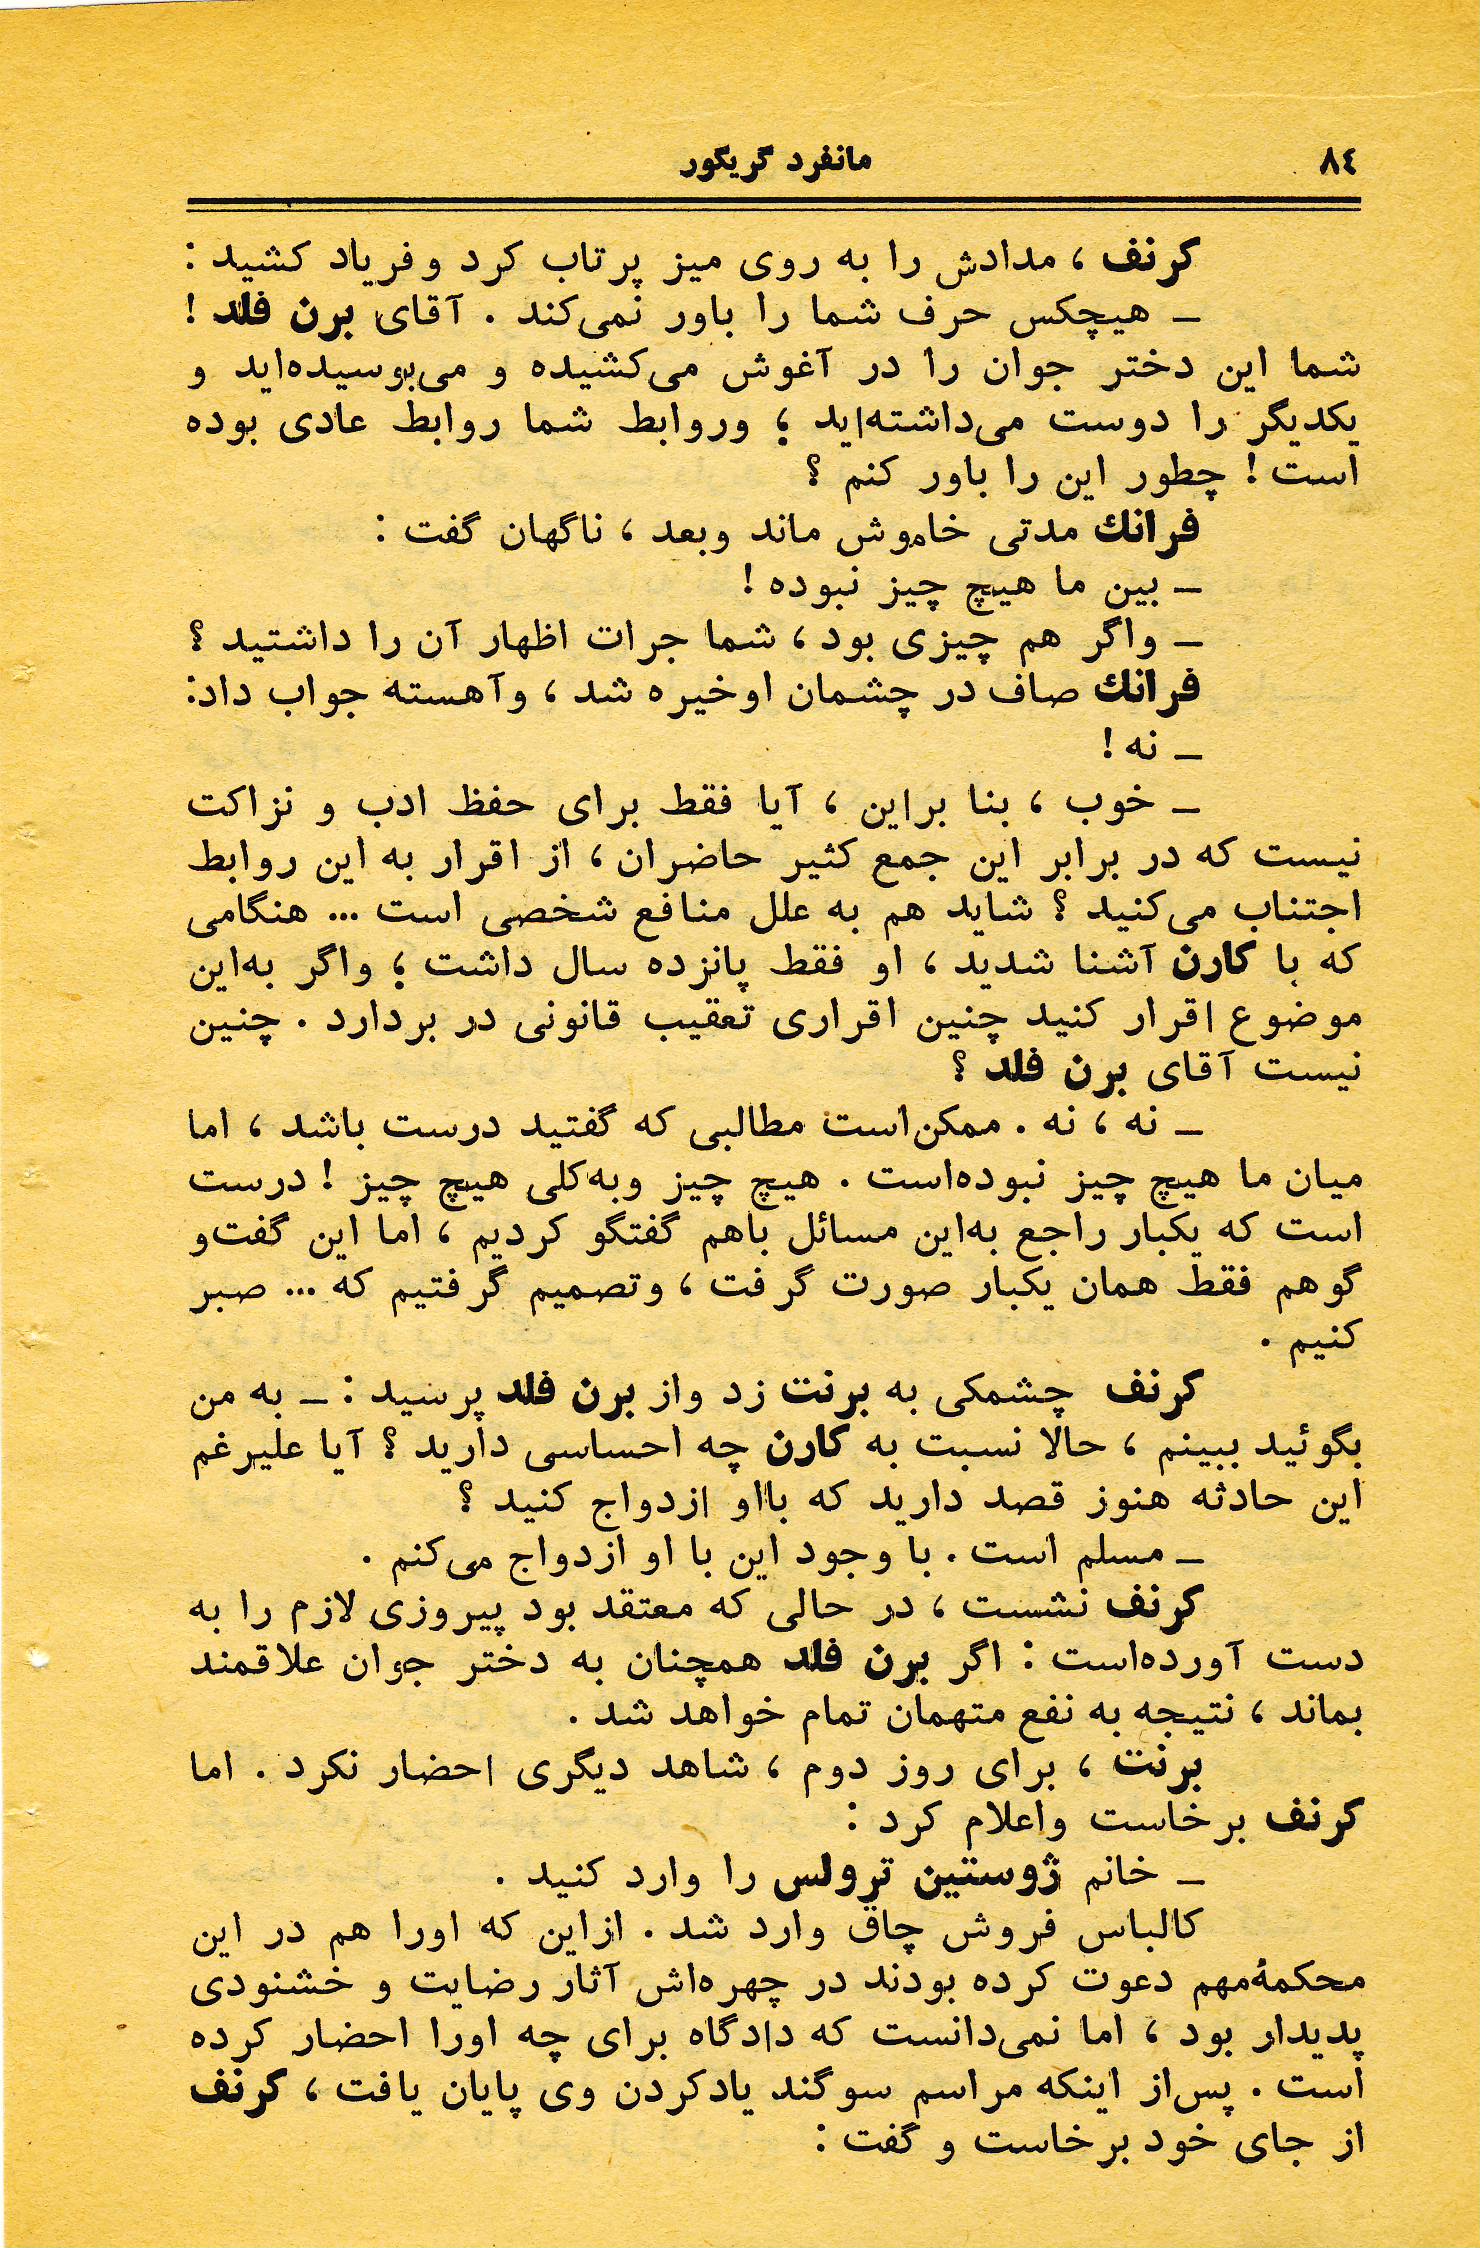 ٨٤
مانفرد گریگور
کرنف ، مدادش را به روی میز پرتاب کرد وفریاد کشید :
ـ هیچکس حرف شما را باور نمی‌کند . آقای برن فلد !
شما این دختر جوان را در آغوش می‌کشیده و می‌بوسیده‌اید و
یکدیگر را دوست می‌داشته‌اید ؛ وروابط شما روابط عادی بوده
است ! چطور این را باور کنم ؟
فرانك مدتی خاموش ماند وبعد ، ناگهان گفت :
ـ بین ما هیچ چیز نبوده !
ـ واگر هم چیزی بود ، شما جرات اظهار آن را داشتید ؟
فرانك صاف در چشمان اوخیره شد ، وآهسته جواب داد:
ـ نه !
ـ خوب ، بنا براین ، آیا فقط برای حفظ ادب و نزاکت
نیست که در برابر این جمع کثیر حاضران ، از اقرار به این روابط
اجتناب می‌کنید ؟ شاید هم به علل منافع شخصی است ... هنگامی
که با کارن آشنا شدید ، او فقط پانزده سال داشت ؛ واگر به‌این
موضوع اقرار کنید چنین اقراری تعقیب قانونی در بردارد . چنین
نیست آقای برن فلد ؟
ـ نه ، نه . ممکن‌است مطالبی که گفتید درست باشد ، اما
میان ما هیچ چیز نبوده‌است . هیچ چیز وبه‌کلی هیچ چیز ! درست
است که یکبار راجع به‌این مسائل باهم گفتگو کردیم ، اما این گفت‌و
گوهم فقط همان یکبار صورت گرفت ، وتصمیم گرفتیم که ... صبر
کنیم .
کرنف چشمکی به برنت زد واز برن فلد پرسید : ـ به من
بگوئید ببینم ، حالا نسبت به کارن چه احساسی دارید ؟ آیا علیرغم
این حادثه هنوز قصد دارید که بااو ازدواج کنید ؟
ـ مسلم است . با وجود این با او ازدواج می‌کنم .
کرنف نشست ، در حالی که معتقد بود پیروزی لازم را به
دست آورده‌است : اگر برن فلد همچنان به دختر جوان علاقمند
بماند ، نتیجه به نفع متهمان تمام خواهد شد .
برنت ، برای روز دوم ، شاهد دیگری احضار نکرد . اما
کرنف برخاست واعلام کرد :
ـ خانم ژوستین ترولس را وارد کنید .
کالباس فروش چاق وارد شد . ازاین که اورا هم در این
محکمهٔ‌مهم دعوت کرده بودند در چهره‌اش آثار رضایت و خشنودی
پدیدار بود ، اما نمی‌دانست که دادگاه برای چه اورا احضار کرده
است . پس‌از اینکه مراسم سوگند یادکردن وی پایان یافت ، کرنف
از جای خود برخاست و گفت :